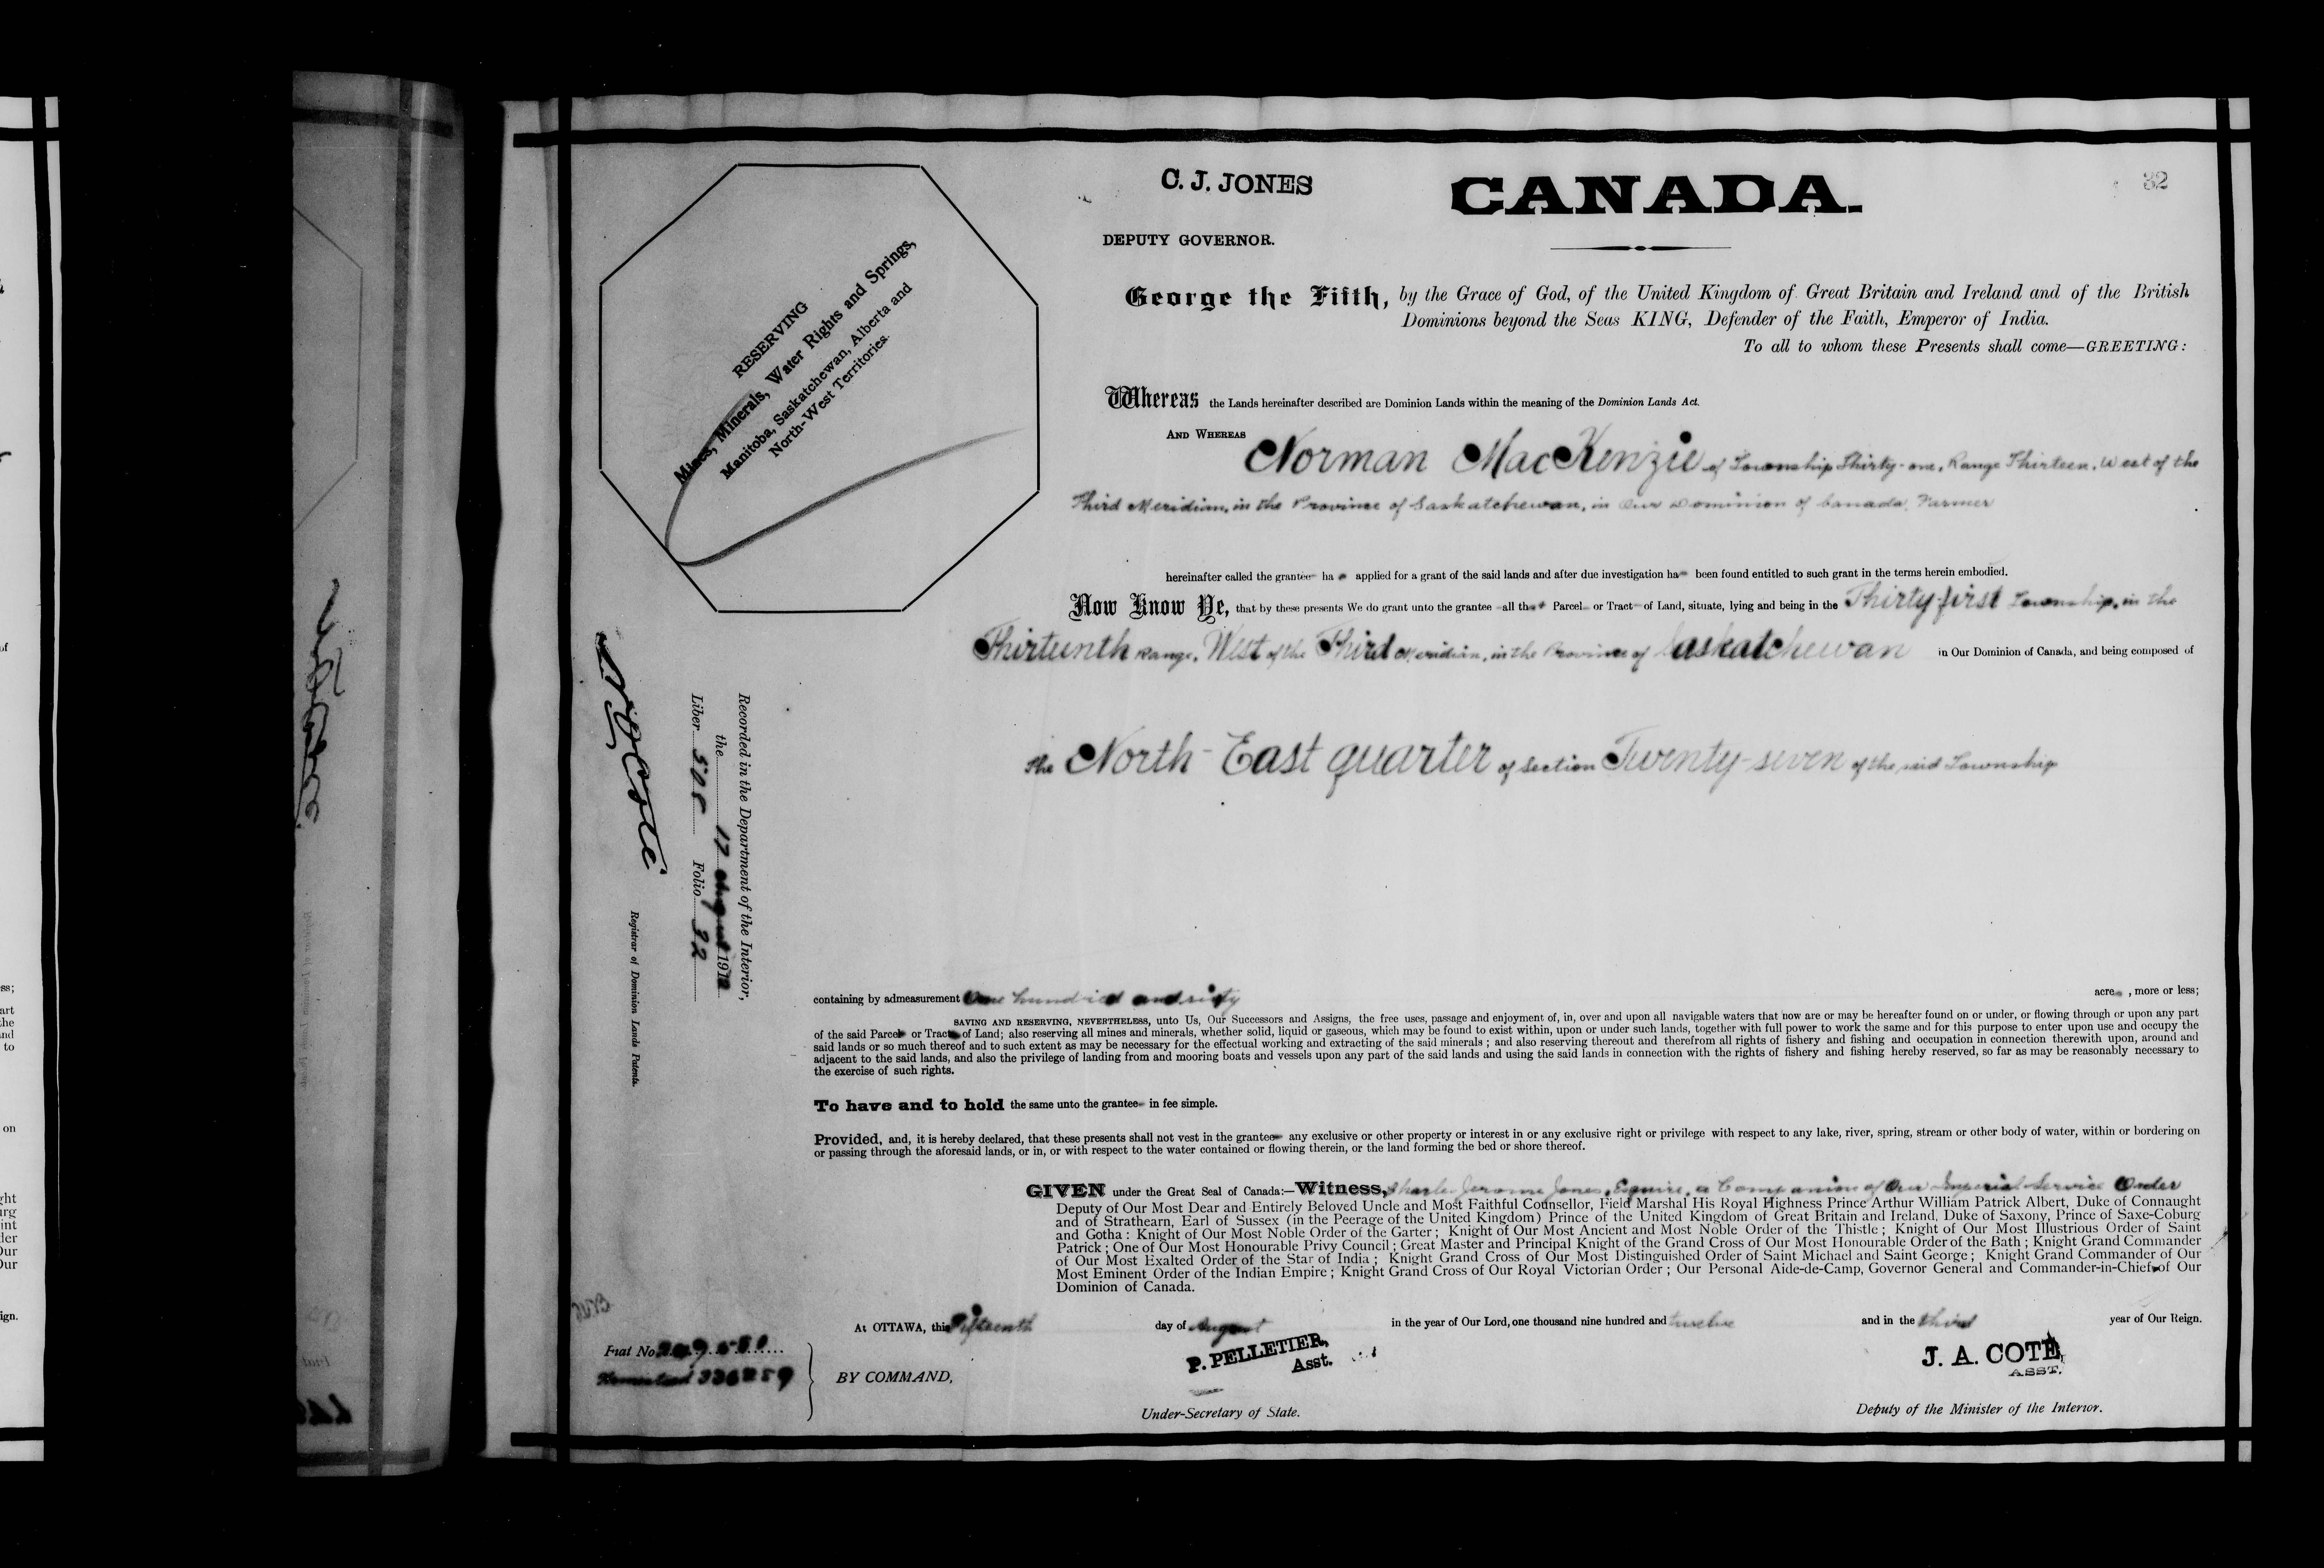 C. J. JONES
CANADA.
32
DEPUTY GOVERNOR.
George the Fifth, by the Grace of God, of the United Kingdom of Great Britain and Ireland and of the British
Dominions beyond the Seas KING, Defender of the Faith, Emperor of India.
To all to whom these Presents shall come—GREETING:
RESERVING
Mines, Minerals, Water Rights and Springs,
Manitoba, Saskatchewan, Alberta and
North-West Territories.
Whereas the Lands hereinafter described are Dominion Lands within the meaning of the Dominion Lands Act.
AND WHEREAS Norman MacKenzie of Township Thirty-one, Range Thirteen, West of the
Third Meridian, in the Province of Saskatchewan, in Our Dominion of Canada, Farmer
hereinafter called the grantee ha s applied for a grant of the said lands and after due investigation ha been found entitled to such grant in the terms herein embodied.
Now Know Ye, that by these presents We do grant unto the grantee all that Parcel or Tract of Land, situate, lying and being in the Thirty-first Township, in the
Thirteenth Range, West of the Third Meridian, in the Province of Saskatchewan in Our Dominion of Canada, and being composed of
the North-East quarter of Section Twenty-seven of the said Township
Recorded in the Department of the Interior,
the 17 August 1912
Liber 508 Folio 32
Registrar of Dominion Lands Patents.
containing by admeasurement One hundred and sixty acres, more or less;
SAVING AND RESERVING, NEVERTHELESS, unto Us, Our Successors and Assigns, the free uses, passage and enjoyment of, in, over and upon all navigable waters that now are or may be hereafter found on or under, or flowing through or upon any part
of the said Parcel or Tract of Land; also reserving all mines and minerals, whether solid, liquid or gaseous, which may be found to exist within, upon or under such lands, together with full power to work the same and for this purpose to enter upon use and occupy the
said lands or so much thereof and to such extent as may be necessary for the effectual working and extracting of the said minerals ; and also reserving thereout and therefrom all rights of fishery and fishing and occupation in connection therewith upon, around and
adjacent to the said lands, and also the privilege of landing from and mooring boats and vessels upon any part of the said lands and using the said lands in connection with the rights of fishery and fishing hereby reserved, so far as may be reasonably necessary to
the exercise of such rights.
To have and to hold the same unto the grantee in fee simple.
Provided, and, it is hereby declared, that these presents shall not vest in the grantee any exclusive or other property or interest in or any exclusive right or privilege with respect to any lake, river, spring, stream or other body of water, within or bordering on
or passing through the aforesaid lands, or in, or with respect to the water contained or flowing therein, or the land forming the bed or shore thereof.
GIVEN under the Great Seal of Canada:—Witness, Charles Jerome Jones, Esquire, a Companion of Our Imperial Service Order
Deputy of Our Most Dear and Entirely Beloved Uncle and Most Faithful Counsellor, Field Marshal His Royal Highness Prince Arthur William Patrick Albert, Duke of Connaught
and of Strathearn, Earl of Sussex (in the Peerage of the United Kingdom) Prince of the United Kingdom of Great Britain and Ireland, Duke of Saxony, Prince of Saxe-Coburg
and Gotha : Knight of Our Most Noble Order of the Garter ; Knight of Our Most Ancient and Most Noble Order of the Thistle ; Knight of Our Most Illustrious Order of Saint
Patrick ; One of Our Most Honourable Privy Council ; Great Master and Principal Knight of the Grand Cross of Our Most Honourable Order of the Bath ; Knight Grand Commander
of Our Most Exalted Order of the Star of India ; Knight Grand Cross of Our Most Distinguished Order of Saint Michael and Saint George ; Knight Grand Commander of Our
Most Eminent Order of the Indian Empire ; Knight Grand Cross of Our Royal Victorian Order ; Our Personal Aide-de-Camp, Governor General and Commander-in-Chief of Our
Dominion of Canada.
At OTTAWA, this Fifteenth day of August in the year of Our Lord, one thousand nine hundred and twelve and in the third year of Our Reign.
Fiat No.
Homestead
BY COMMAND,
P. PELLETIER,
Asst.
Under-Secretary of State.
J. A. COTÉ,
ASST.
Deputy of the Minister of the Interior.